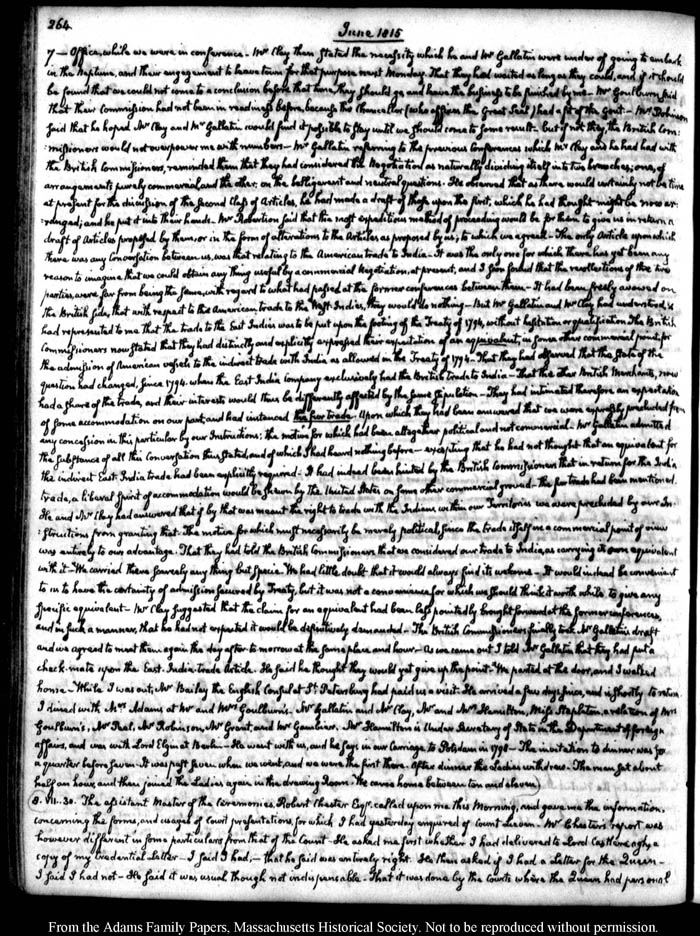 264
June 1815
7 — Office, while we were in conference — Mr Clay then stated the necessity which he and Mr Gallatin were under of going to embark
in the Neptune, and their engagement to leave town for that purpose next Monday. That they had waited as long as they could, and if it should
be found that we could not come to a conclusion before that time, they should go and leave the business to be finished by me — Mr Goulburn said
that their Commission had not been in readiness before, because the Chancellor (who affixes the Great Seal) had a fit of the Gout — Mr Robinson
said that he hoped Mr Clay and Mr Gallatin would find it possible to stay until we should come to some result. But if not they, the British Com:
:missioners would not overpower me with numbers — Mr Gallatin referring to the previous conferences which Mr Clay and he had had with
the British Commissioners, reminded them that they had considered the Negotiation as naturally dividing itself into two branches; one, of
arrangements purely commercial and the other, on the belligerent and neutral questions. He observed that as there would certainly not be time
at present for the discussion of the second Class of Articles, he had made a draft of those upon the first, which he had thought might be now ar:
:ranged; and he put it into their hands. Mr Robertson said that the most expeditious method of proceeding would be for them to give us in return a
draft of Articles proposed by them, or in the form of alterations to the Articles as proposed by us; to which we agreed — The only Article upon which
there was any conversation between us, was that relating to the American trade to India — It was the only one for which there has yet been any
reason to imagine that we could obtain any thing useful by a commercial Negotiation, at present, and I soon found that the recollections of the two
parties, were far from being the same, with regard to what had passed at the former conferences between them — It had been freely avowed on
the British side, that with respect to the American trade to the West-Indies, they would do nothing — But Mr Gallatin and Mr Clay had understood, &
had represented to me that the trade to the East Indies was to be put upon the footing of the Treaty of 1794, without hesitation or qualification The British
Commissioners now stated that they had distinctly and explicitly expressed their expectation of an equivalent, in some other commercial point for
the admission of American vessels to the indirect trade with India as allowed in the Treaty of 1794 — That they had observed that the state of the
question had changed, since 1794 when the East India Company exclusively had the British trade to India — That the other British Merchants, now
had a share of the trade, and their interests would thus be differently affected by the same stipulation — They had intimated therefore an expectation
of some accommodation on our part, and had instanced the fur trade. Upon which they had been answered that we were expressly precluded from
any concession in this particular by our Instructions: the motive for which had been altogether political and not commercial. Mr Gallatin admitted
the substance of all this Conversation thus stated, and of which I had heard nothing before — excepting that he had not thought that an equivalent for
the indirect East India trade had been explicitly required — It had indeed been hinted by the British Commissioners that in return for the India
trade, a liberal spirit of accommodation would be shewn by the United States on some other commercial ground — The fur trade had been mentioned.
He and Mr Clay had answered that if by that was meant the right to trade with the Indians within our Territories we were precluded by our In:
:structions from granting that. The motive for which must necessarily be merely political, since the trade itself in a commercial point of view
was entirely to our advantage. That they had told the British Commissioners that we considered our trade to India, as carrying its own equivalent
with it — We carried there scarcely any thing but specie. We had little doubt that it would always find its welcome — It would indeed be convenient
to us to have the certainty of admission secured by Treaty, but it was not a convenience for which we should think it worth while to give any
specific equivalent — Mr Clay suggested that the claim for an equivalent had been less pointedly brought forward at the former conferences,
and in such a manner, that he had not expected it would be definitively demanded — The British Commissioners finally took Mr Gallatin's draft
and we agreed to meet them again the day after to-morrow at the same place and hour — As we came out I told Mr Gallatin that they had put a
check-mate upon the East-India trade Article. He said he thought they would yet give up the point — We parted at the door, and I walked
home — While I was out, Mr Bailey the English Consul at St Petersburg had paid us a visit. He arrived a few days since, and is shortly to return
I dined with Mrs Adams at Mr and Mrs Goulburn's. Mr Gallatin and Mr Clay, Mr and Mrs Hamilton, Miss Stapleton, a relation of Mrs
Goulburn's, Mr Peel, Mr Robinson, Mr Grant, and Mr Gambier. Mr Hamilton is Under Secretary of State in the Department of foreign
affairs, and was with Lord Elgin at Berlin — He went with us, and he says in our Carriage to Potsdam in 1798 — The invitation to dinner was for
a quarter before seven. It was past seven when we went, and we were the first there. After dinner the Ladies withdrew. The men sat about
half an hour, and then joined the Ladies again in the drawing Room. We came home between ten and eleven
8. VII:30. The assistant Master of the Ceremonies, Robert Chester Esqr. called upon me this Morning, and gave me the information,
concerning the forms, and usages of Court presentations, for which I had yesterday enquired of Count Lieven. Mr Chester's report was
however different in some particulars from that of the Count — He asked me first whether I had delivered to Lord Castlereagh, a
copy of my Credential Letter — I said I had, — that he said was entirely right. He then asked if I had a Letter for the Queen —
I said I had not — He said it was usual though not indispensable — That it was done by the Courts where the Queen had personal
From the Adams Family Papers, Massachusetts Historical Society. Not to be reproduced without permission.